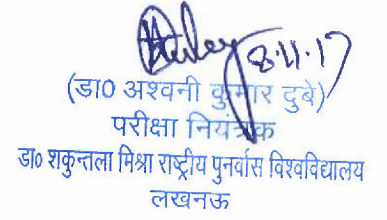 8.11.17
(डा० अश्वनी कुमार दुबे)
परीक्षा नियंत्रक
डा० शकुन्तला मिश्रा राष्ट्रीय पुनर्वास विश्वविद्यालय
लखनऊ